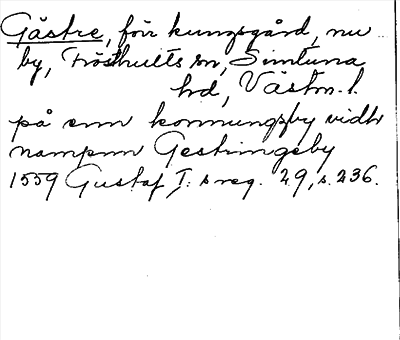 Gästre, förr kungsgård, nu
by, Frösthults sn, Simtuna
hd, Västm. l.
på enn konnungxby widh
nampnn Gestringeby
1559 Gustaf I: s reg. 29, s. 236.